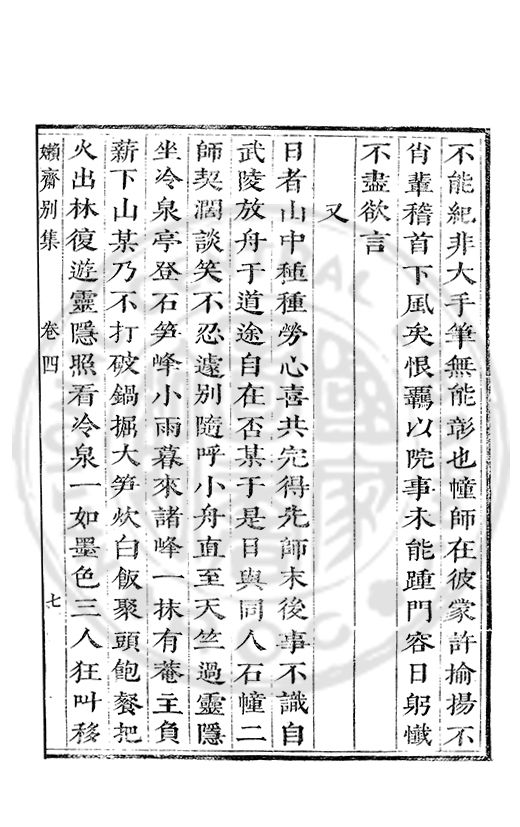 不能紀非大手筆無能彰也幢師在彼蒙許揄揚不
肖輩稽首下風矣恨羈以院事未能踵門容日躬懺
不盡欲言
又
日者山中種種勞心喜共完得先師末後事不識自
武陵放舟于道途自在否某于是日與同人石幢二
師契濶談笑不忍遽別隨呼小舟直至天竺過靈隱
坐冷泉亭登石笋峰小雨暮來諸峰一抹有菴主負
薪下山某乃不打破鍋掘大笋炊白飯聚頭飽餐把
火出林復遊靈隱照看冷泉一如墨色三人狂叫移
嬾齋别集
卷四
七